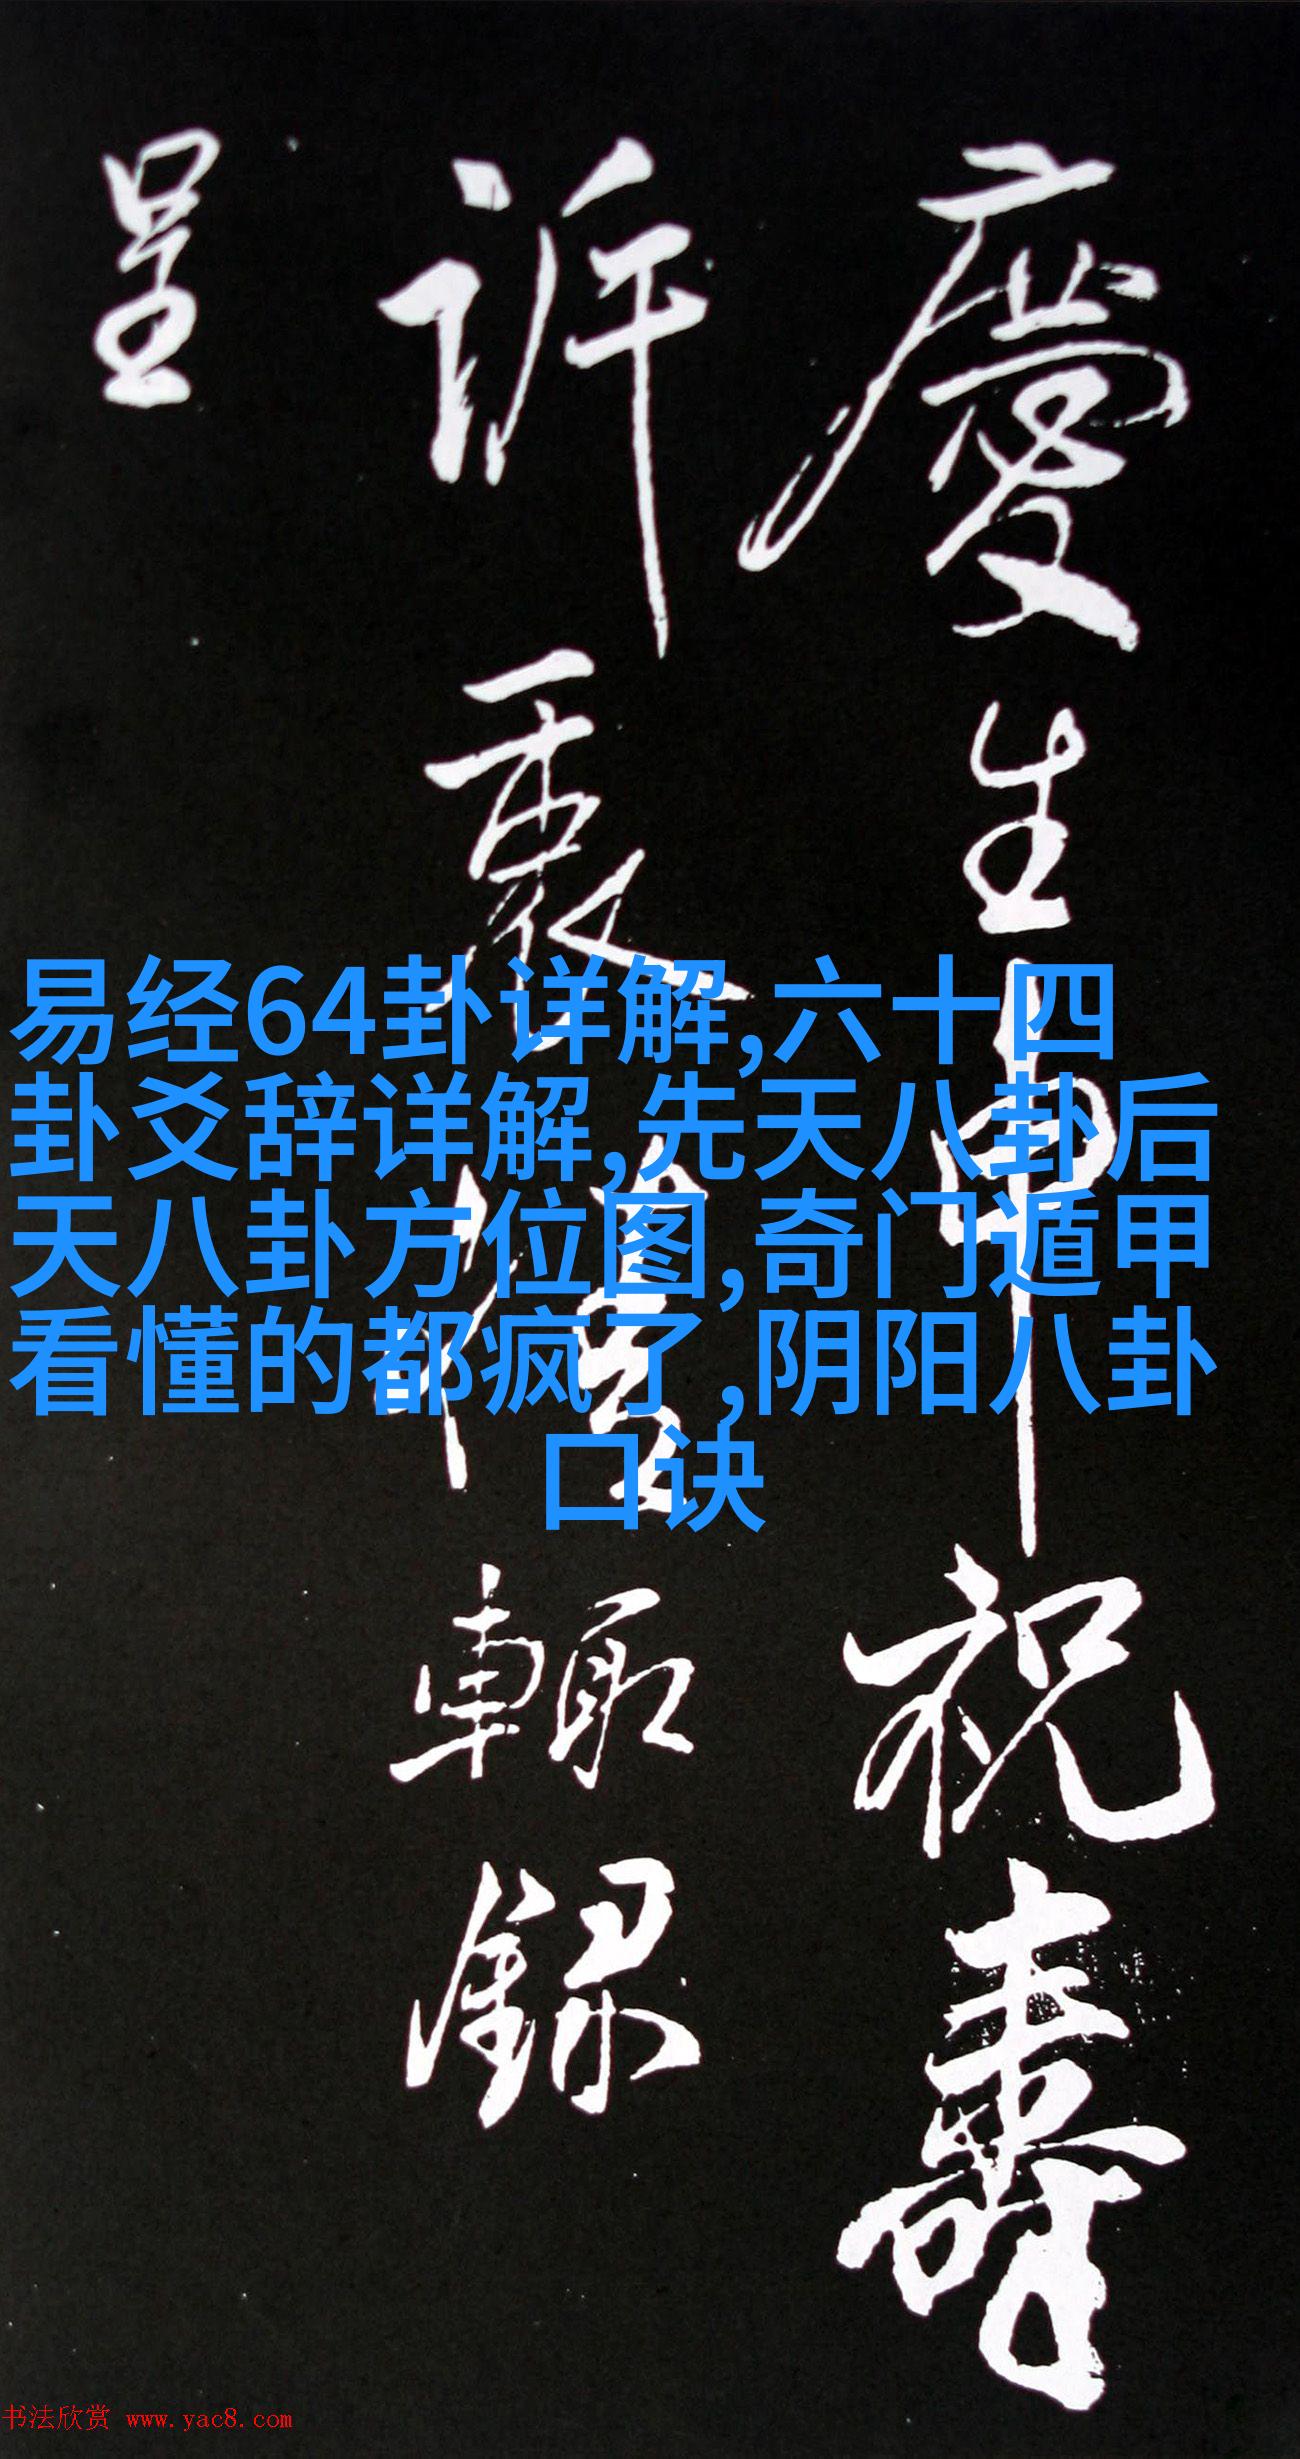 慶生申祝壽
訢
輒録
呈
易经64卦详解,六十四
卦爻辞详解,先天八卦后
天八卦方位图,奇门遁甲
看懂的都疯了,阴阳八卦
口诀
书法欣赏 www.yac8.com